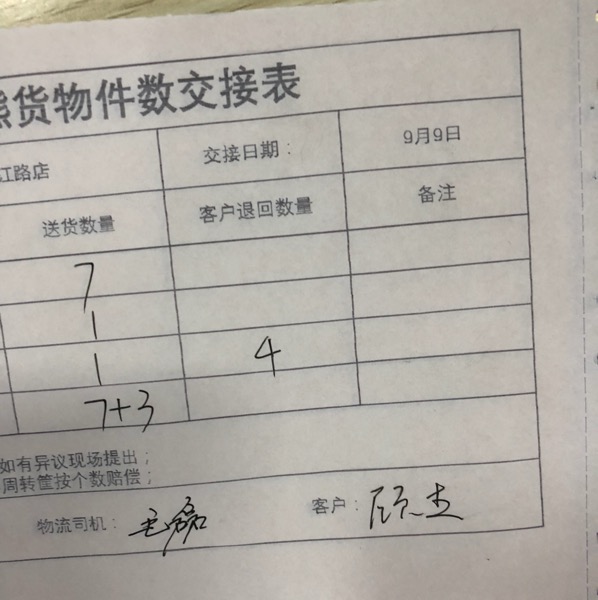 货物件数交接表
江路店 交接日期： 9月9日
送货数量 客户退回数量 备注
7
1
1 4
7+3
如有异议现场提出；
周转筐按个数赔偿；
物流司机：王磊 客户：顾杰